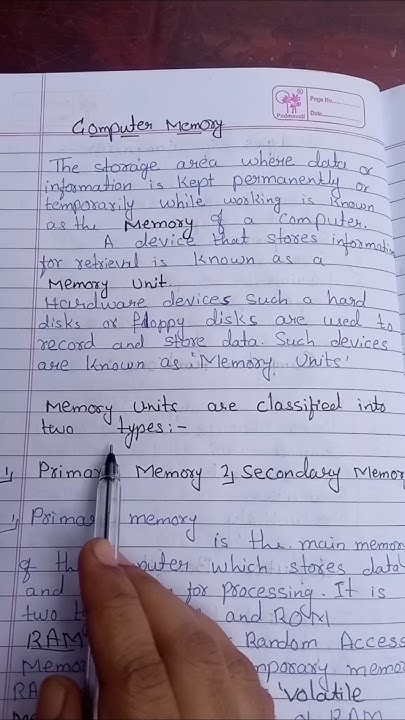 Padmavati
Page No.
Date
Computer Memory
The storage area where data or
information is kept permanently or
temporarily while working is known
as the Memory of a computer.
A device that stores information
for retrieval is known as a
Memory Unit.
Hardware devices such a hard
disks or floppy disks are used to
record and store data. Such devices
are known as 'Memory Units'
Memory units are classified into
two types:-
1, Primary Memory 2, Secondary Memory
1, Primary memory
is the main memory
of the computer which stores data
and for processing. It is
two and ROM
RAM Random Access
Memo temporary memo
RA Volatile
RAM